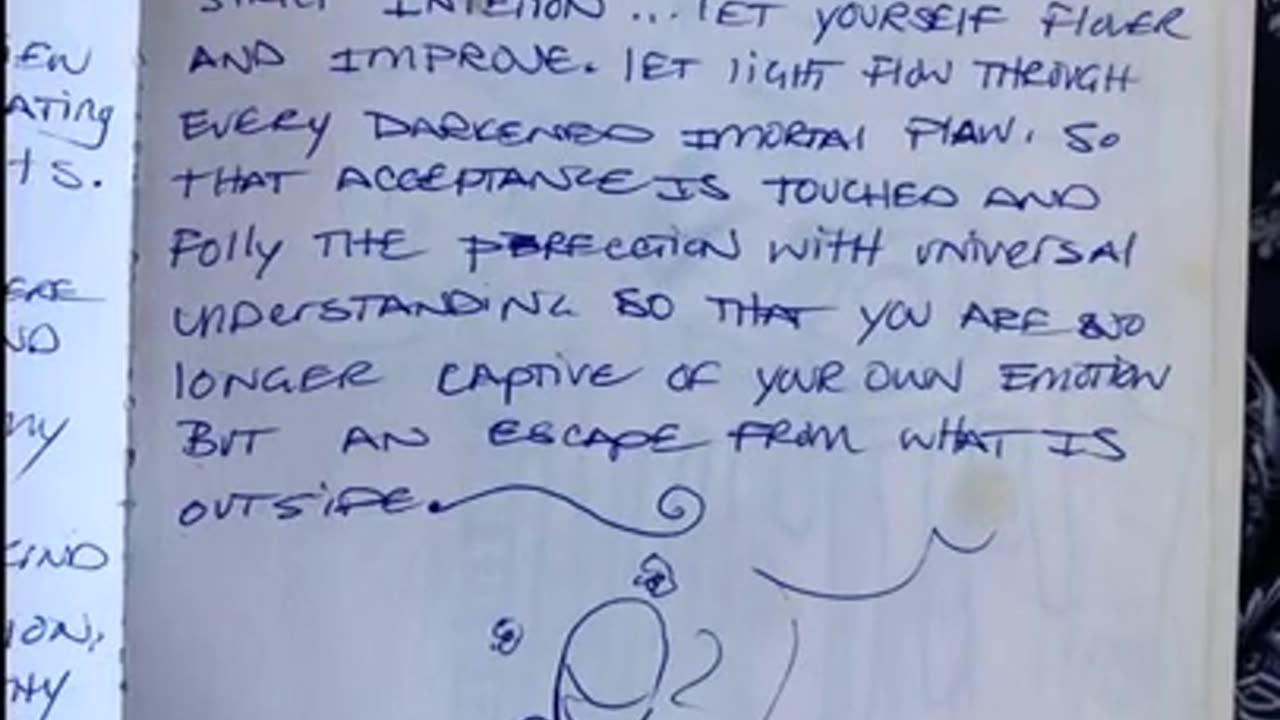 EN
ATING
TS.
ERE
ND
NY
KIND
ION,
NY
STRICT INTETION ... LET YOURSELF FLOWER
AND IMPROVE. LET LIGHT FLOW THROUGH
EVERY DARKENED IMORTAL FLAW. SO
THAT ACCEPTANCE IS TOUCHED AND
FOLLY THE PERFECCTION WITH UNIVERSAL
UNDERSTANDING SO THAT YOU ARE NO
LONGER CAPTIVE OF YOUR OWN EMOTION
BUT AN ESCAPE FROM WHAT IS
OUTSIDE.